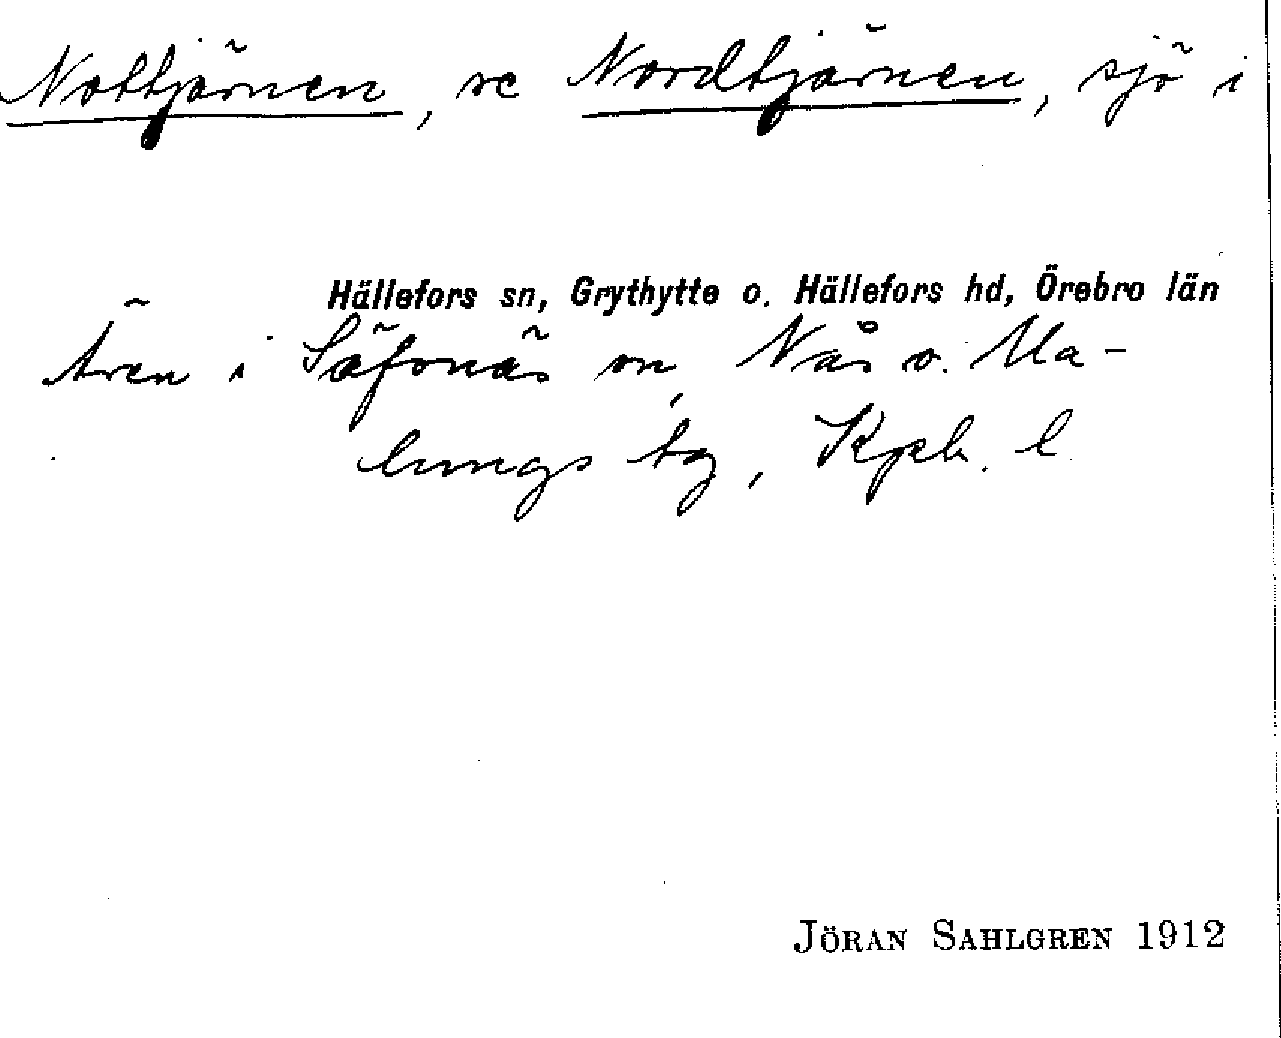 Nottjärnen, se Nordtjärnen, sjö i
Hällefors sn, Grythytte o. Hällefors hd, Örebro län
även i Säfsnäs sn, Nås o. Ma-
lungs tg, Kpb. l
JÖRAN SAHLGREN 1912